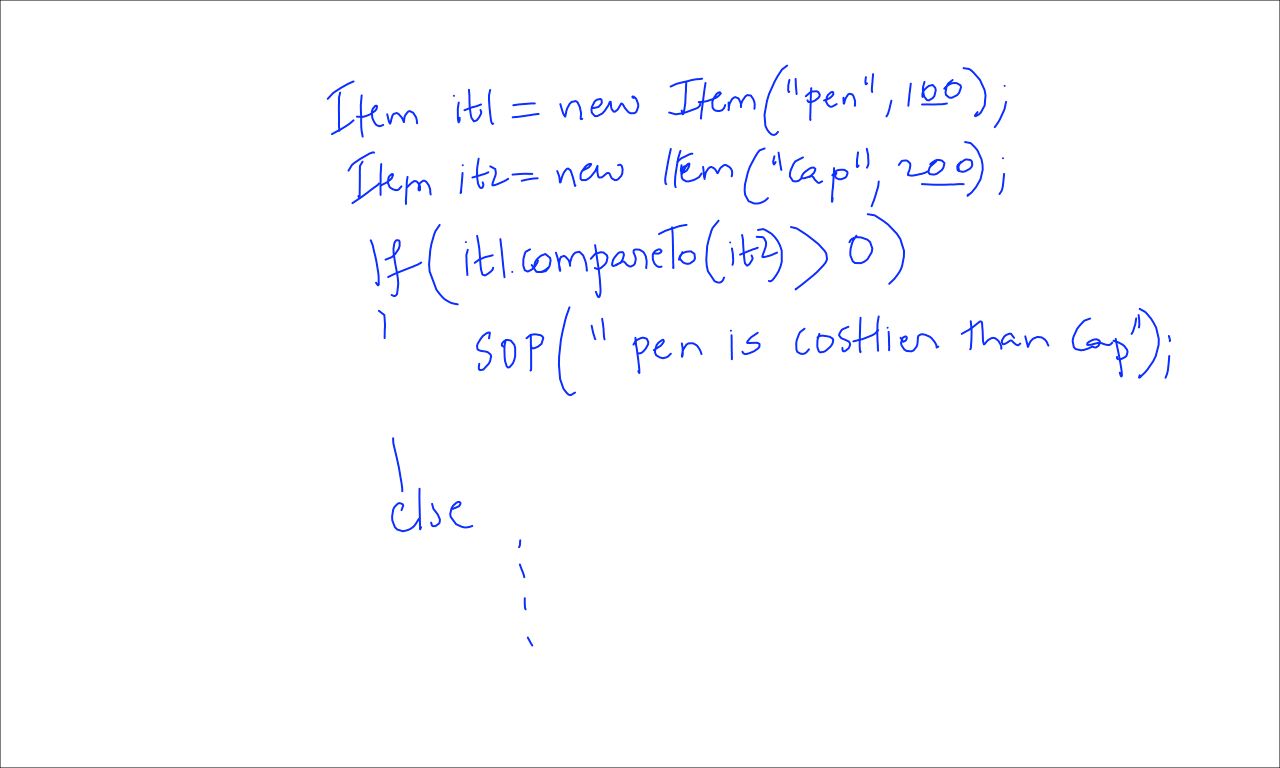 Item it1 = new Item("pen", 100);
Item it2 = new Item("Cap", 200);
If(it1.compareTo(it2) > 0)
SOP(" pen is costlier than Cap");
else